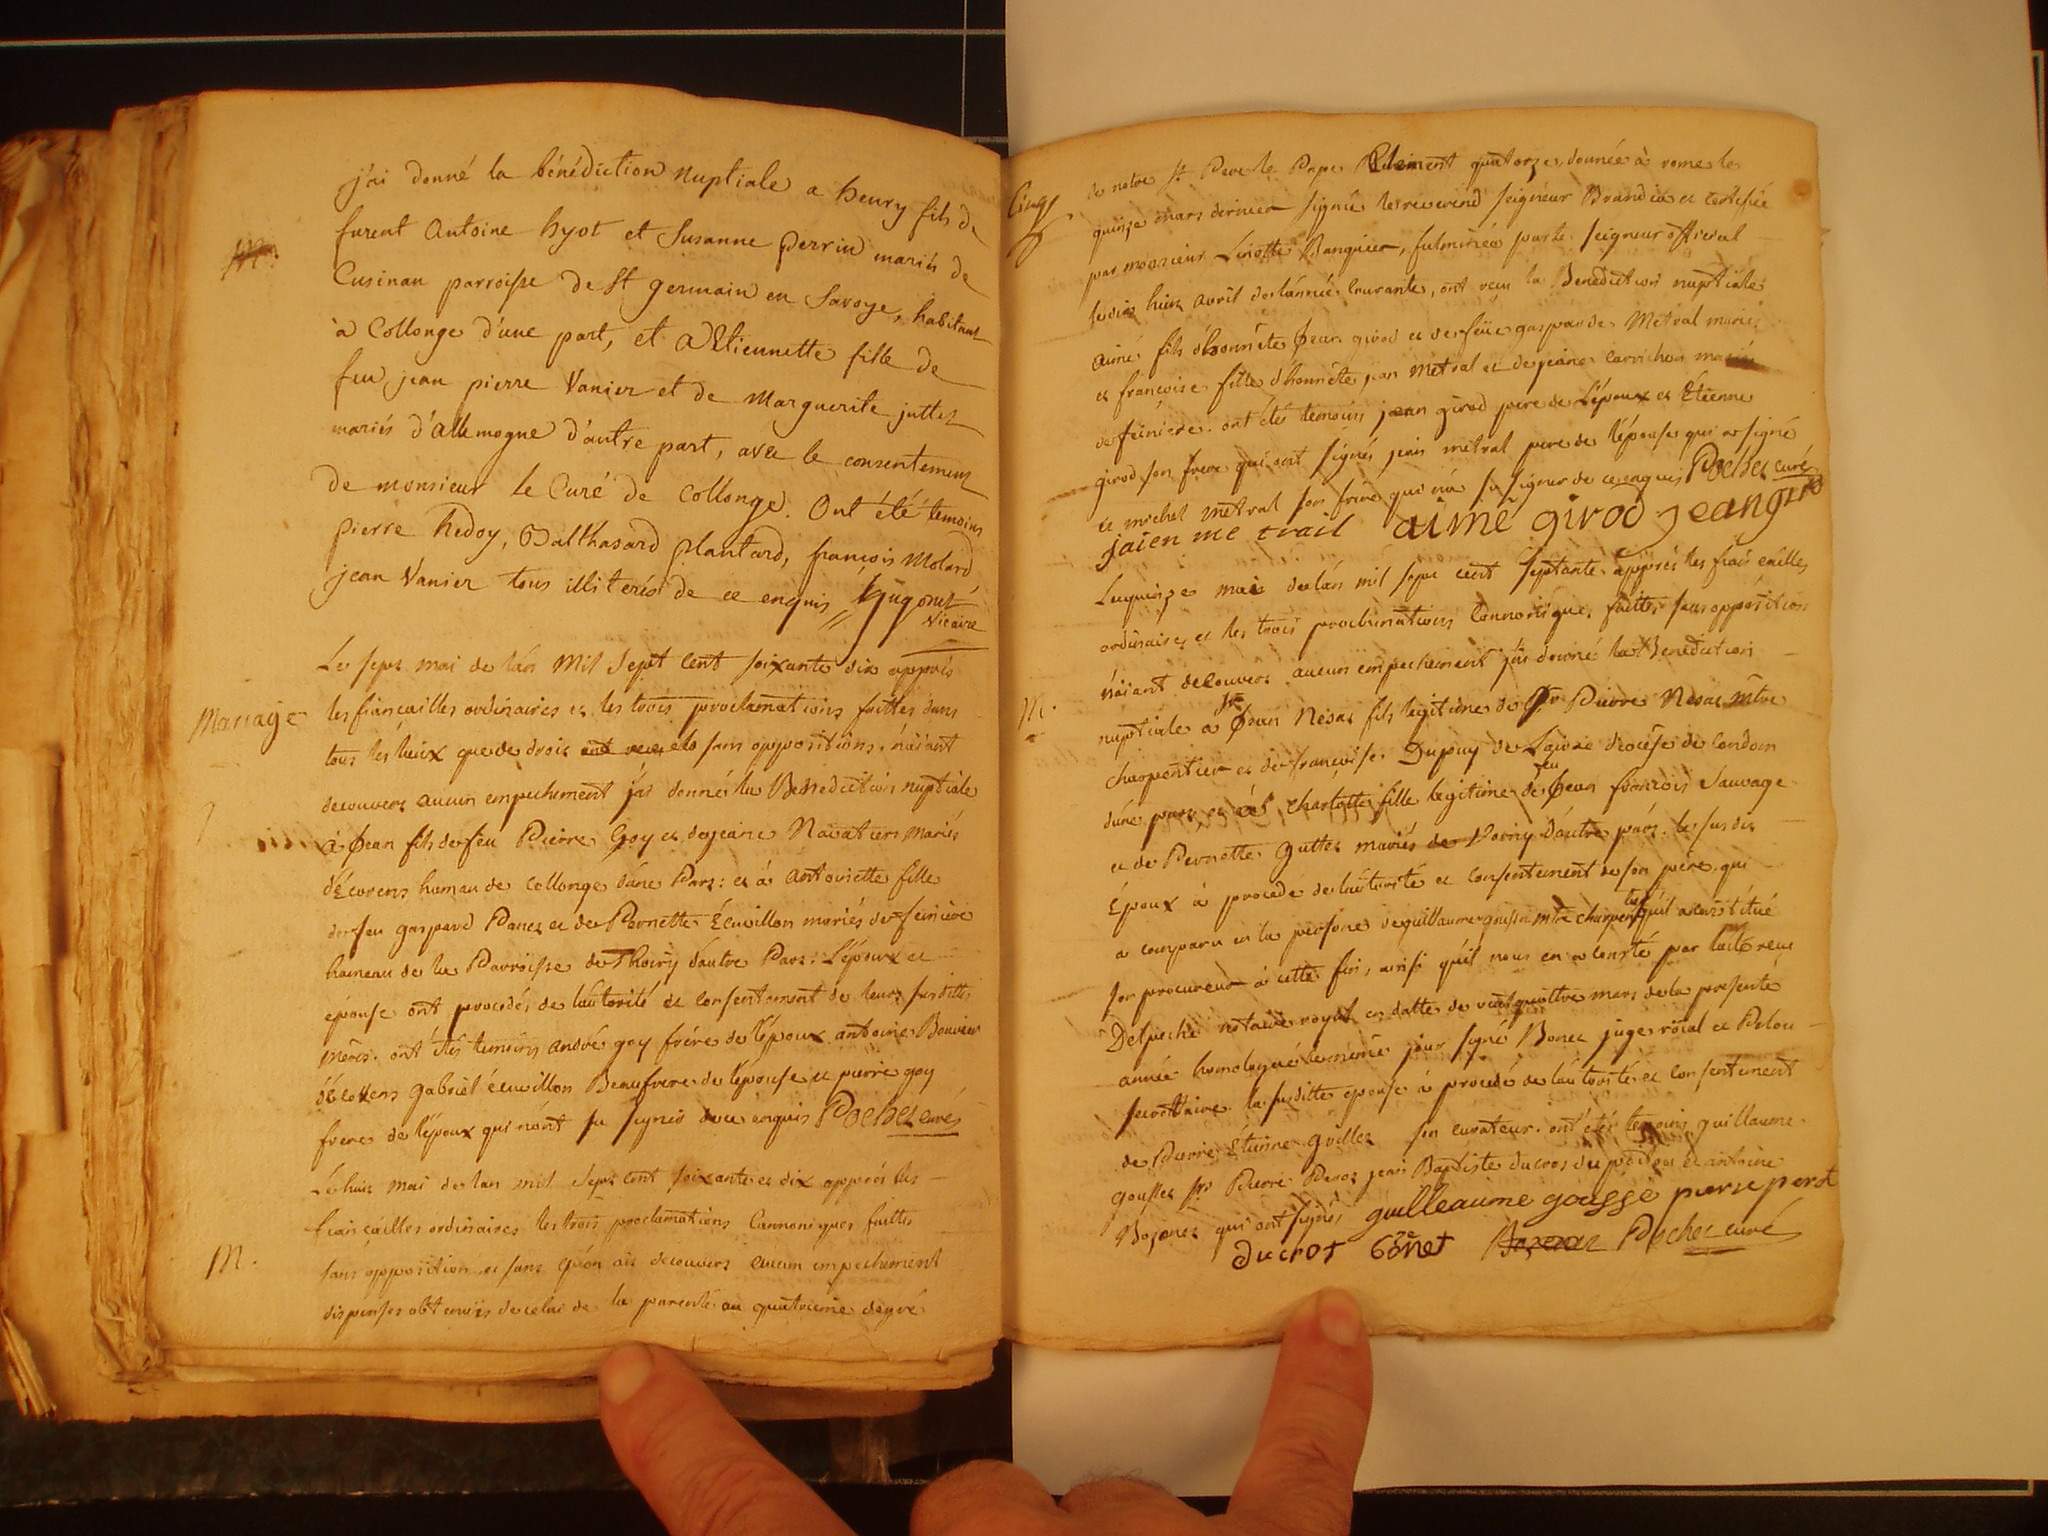 j'ai donné la bénédiction nuptiale a henry fils de
furent Antoine hyot et Susanne perrin mariés de
Cusinau parroisse de St germain en Savoye, habitant
à Collonge d'une part, et a Etiennette fille de
feu jean pierre Vanier et de Marguerite juttet
mariés d'allemogne d'autre part, avec le consentement
de monsieur le Curé de Collonge. Ont été témoins
pierre hedoy, Balthasard plantard, françois Molard,
jean Vanier tous illiterés de ce enquis // hugonet
Vicaire
Mariage
Le sept mai de l'an Mil Sept Cent soixante dix apprés
les fiancailles ordinaires et les trois proclamations faittes dans
tous les lieux que de droit sans oppositions. n'aiant
decouvert aucun empechement j'ai donné la Benediction nuptiale
à Jean fils de feu Pierre Goy et de jeane Navatiers mariés
d'Ecorens hamau de collonge d'une Part: et à Antoinette fille
de feu gaspard Panet et de Pernette Ecuvillon mariés de feiniere
hameau de la Parroisse de Thoiry d'autre Part: L'époux et
épouse ont procedés de l'autorité et consentement de leurs susdittes
mères. ont étés temoins andré goy frère de l'époux antoine Bouvier
d'écorens gabriel écuvillon Beaufrere de l'épouse et pierre goy
frere de l'époux qui n'ont su signer de ce enquis Pochet curé
M.
Le huit mai de l'an mil Sept cent soixante et dix apprés les
fiançailles ordinaires les trois proclamations Cannoniques faittes
sans opposition et sans qu'on ait decouvert aucun empechement
dispenses obtenües de celui de la parenté au quatrieme degré
de notre St Pere le Pape Clement quatorze, donnée à rome le
quinze mars dernier signée le reverend seigneur Brandia et certifiée
par monsieur Linotte Banquier, fulminée par le seigneur official
le dix huit avril de l'année courante, ont reçu la Benediction nuptiale
aimé fils d'honnête Jean girod et de feüe gasparde Metral mariés
et françoise fille d'honnête jean Metral et de jeane Carrichon mariés
de feiniere. ont étés temoins jean girod pere de L'époux et Etienne
girod son frere qui ont signés jean métral pere de l'épouse qui a signé
et michel métral son frère qui n'a su signer de ce enquis Pochet curé
jaien me trail aimé girod jean giro
Le quinze mai de l'an mil sept cent septante. apprés les fiançailles
ordinaires et les trois proclamations Cannonique, faittes sans opposition
n'aiant decouvert aucun empechement j'ai donné la Benediction
M.
nuptiale à Sr Jean Nesat fils legitime de Sr Pierre Nesat mtre
charpentier et de francoise Dupuy de Laivze diocése de Condom
d'une part et à charlotte fille legitime de feu Jean françois Sauvage
et de Pernette Guttet mariés de Vorny d'autre part. le susdit
Epoux à procedé de l'autorité et consentement de son père, qui
a comparu en la persone de guillaume gousset mtre charpentier qu'il a constitué
son procureur à cette fin, ainsi qu'il nous en a consté par l'acte reçu
Delpeche notaire royal en datte de vent quattre mars de la presente
année homologué le meme jour signé Bonet juge roïal et Pelou
secrettaire. la susditte épouse à procedé de l'autorité et consentement
de Pierre Etienne Guillet son curateur. ont étés temoins guillaume
gousset sr Pierre Perot jean Baptiste ducros et antoine
Bozonet qui ont signés guilleaume gousse pierre perot
ducrot Pochet curé